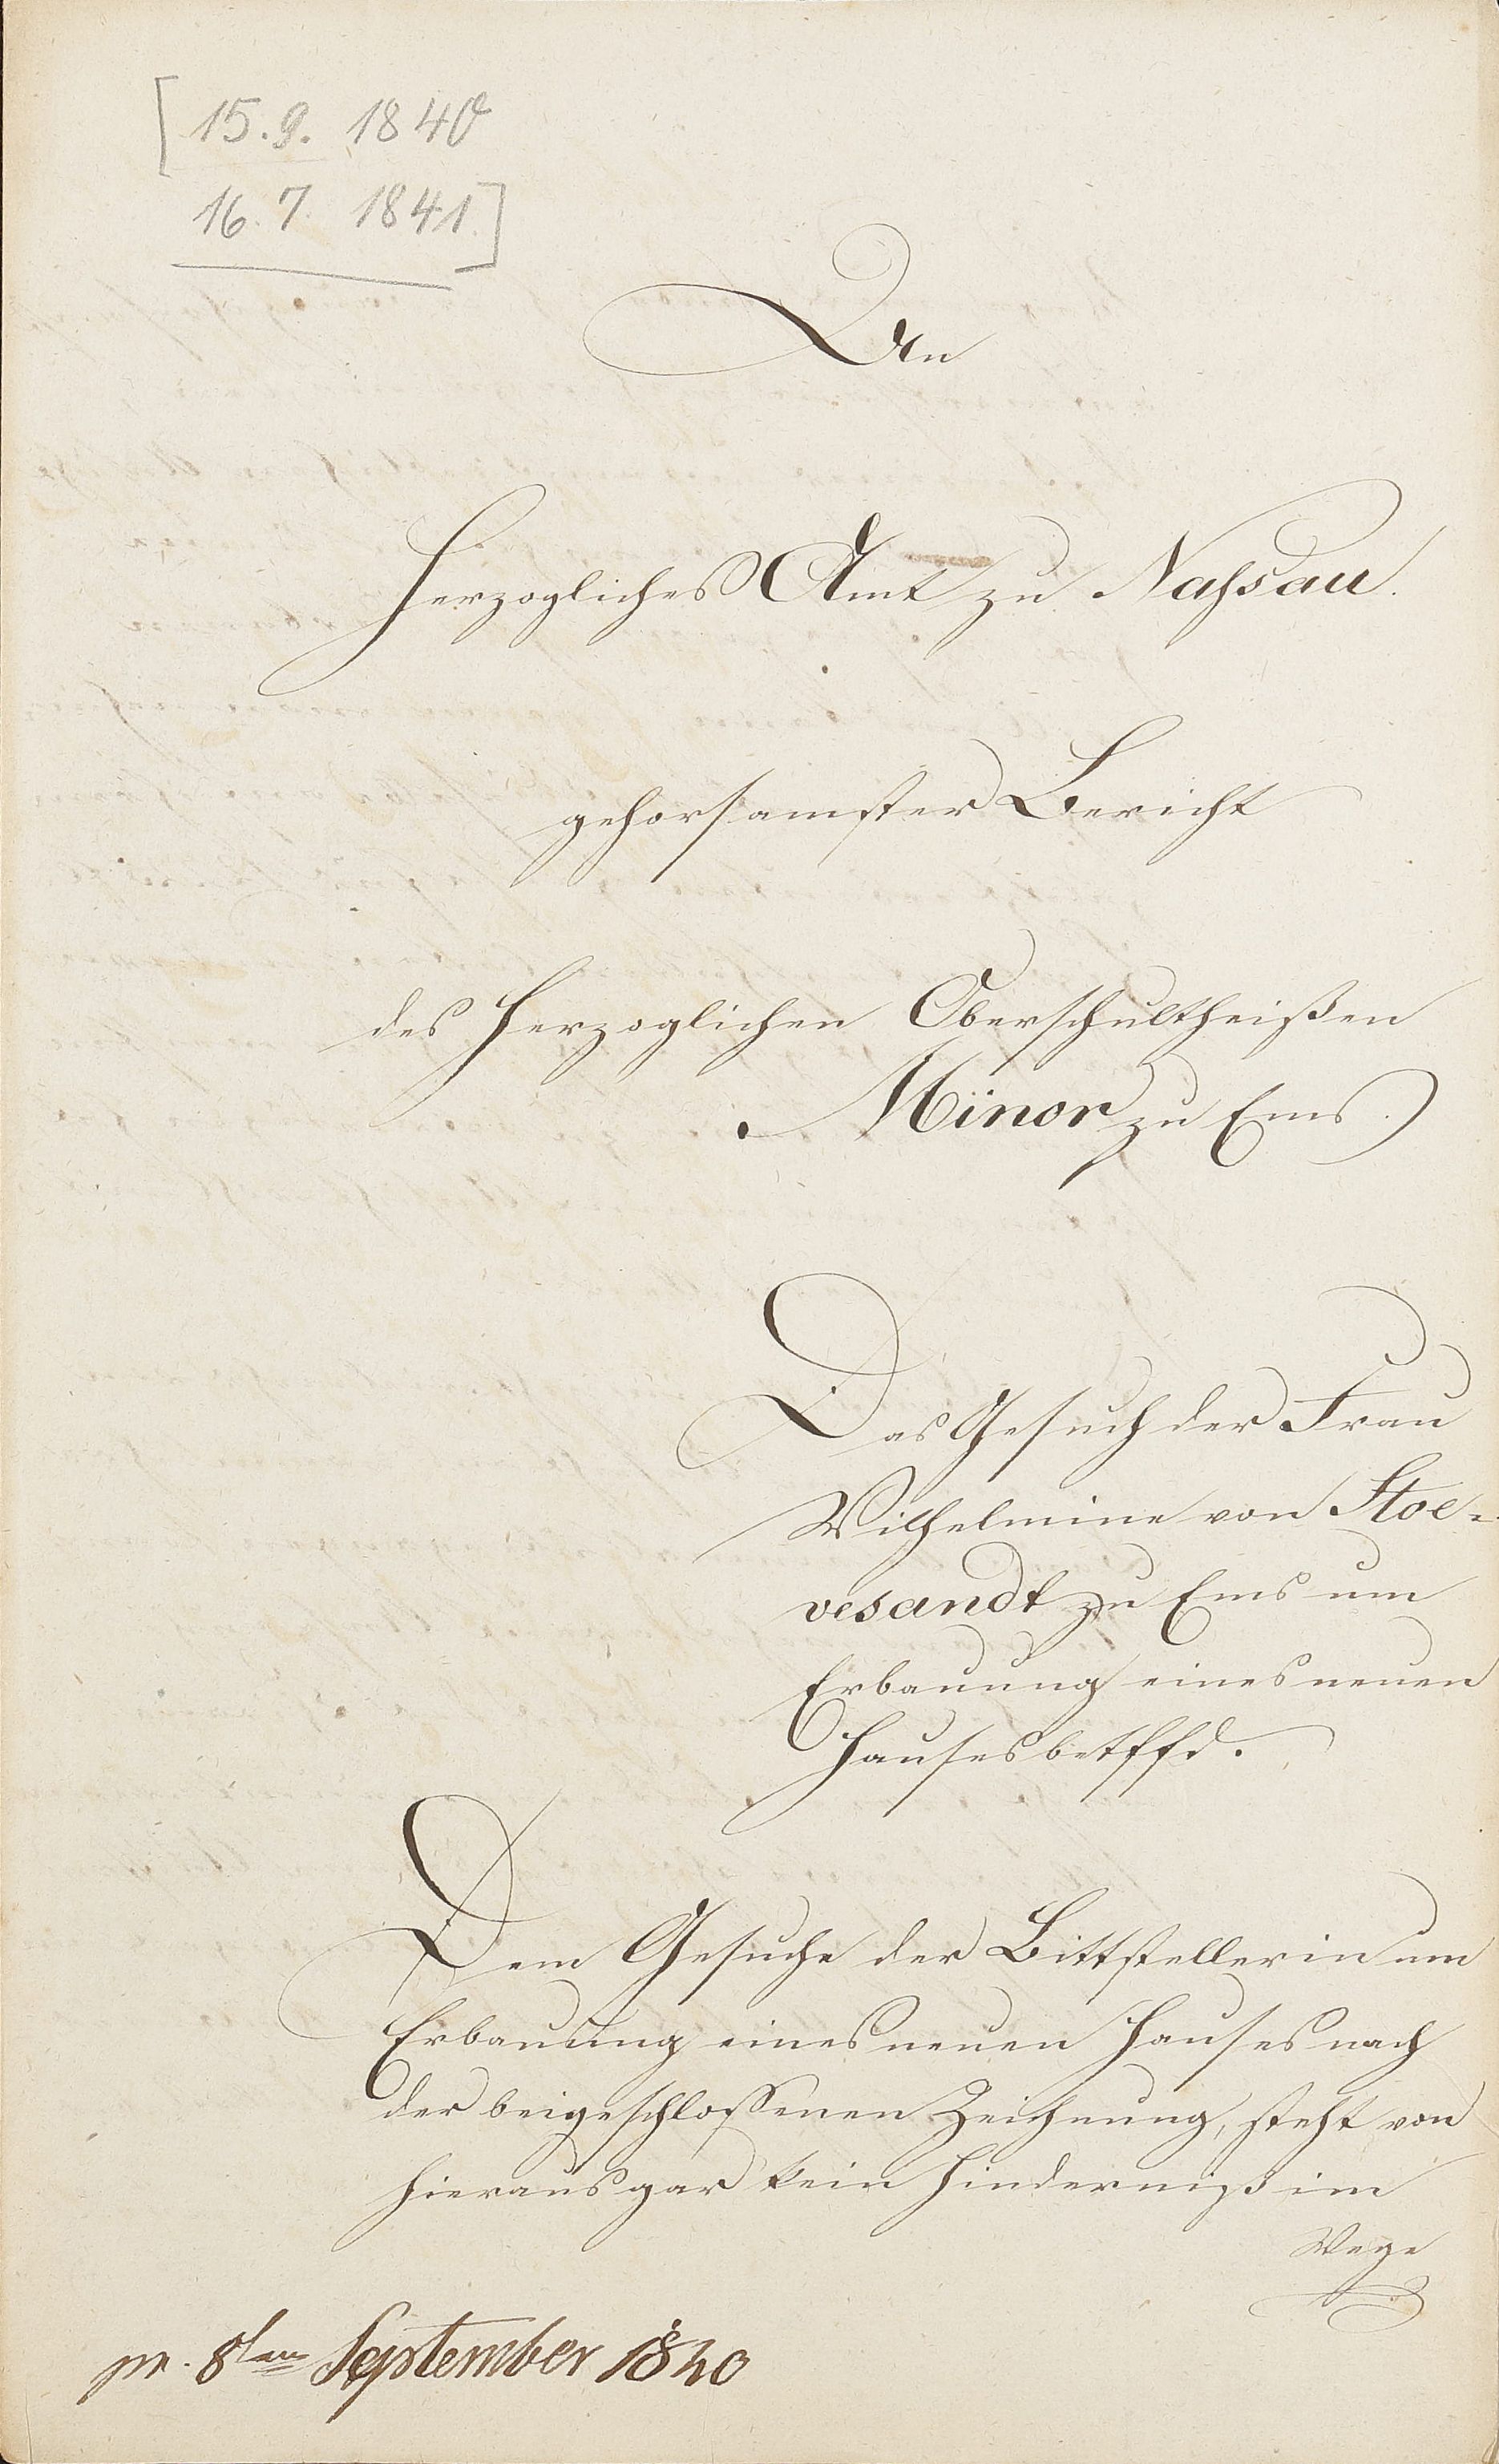 [15. 9. 1840
16. 7. 1841.]
An
Herzogliches Amt zu Naßsau.
gehorsamster Bericht
des Herzoglichen Oberschultheißen
Minor zu Ems.
Das Gesuch der Frau
Wilhelmine von Stoe-
vesandt zu Ems um
Erbauung eines neuen
Hauses betffd.
Dem Gesuche der Bittstellerin um
Erbauung eines neuen Hauses nach
der beigeschlossenen Zeichnung, steht von
hieraus gar kein Hinderniß im
Wege
pr. 8ten September 1840